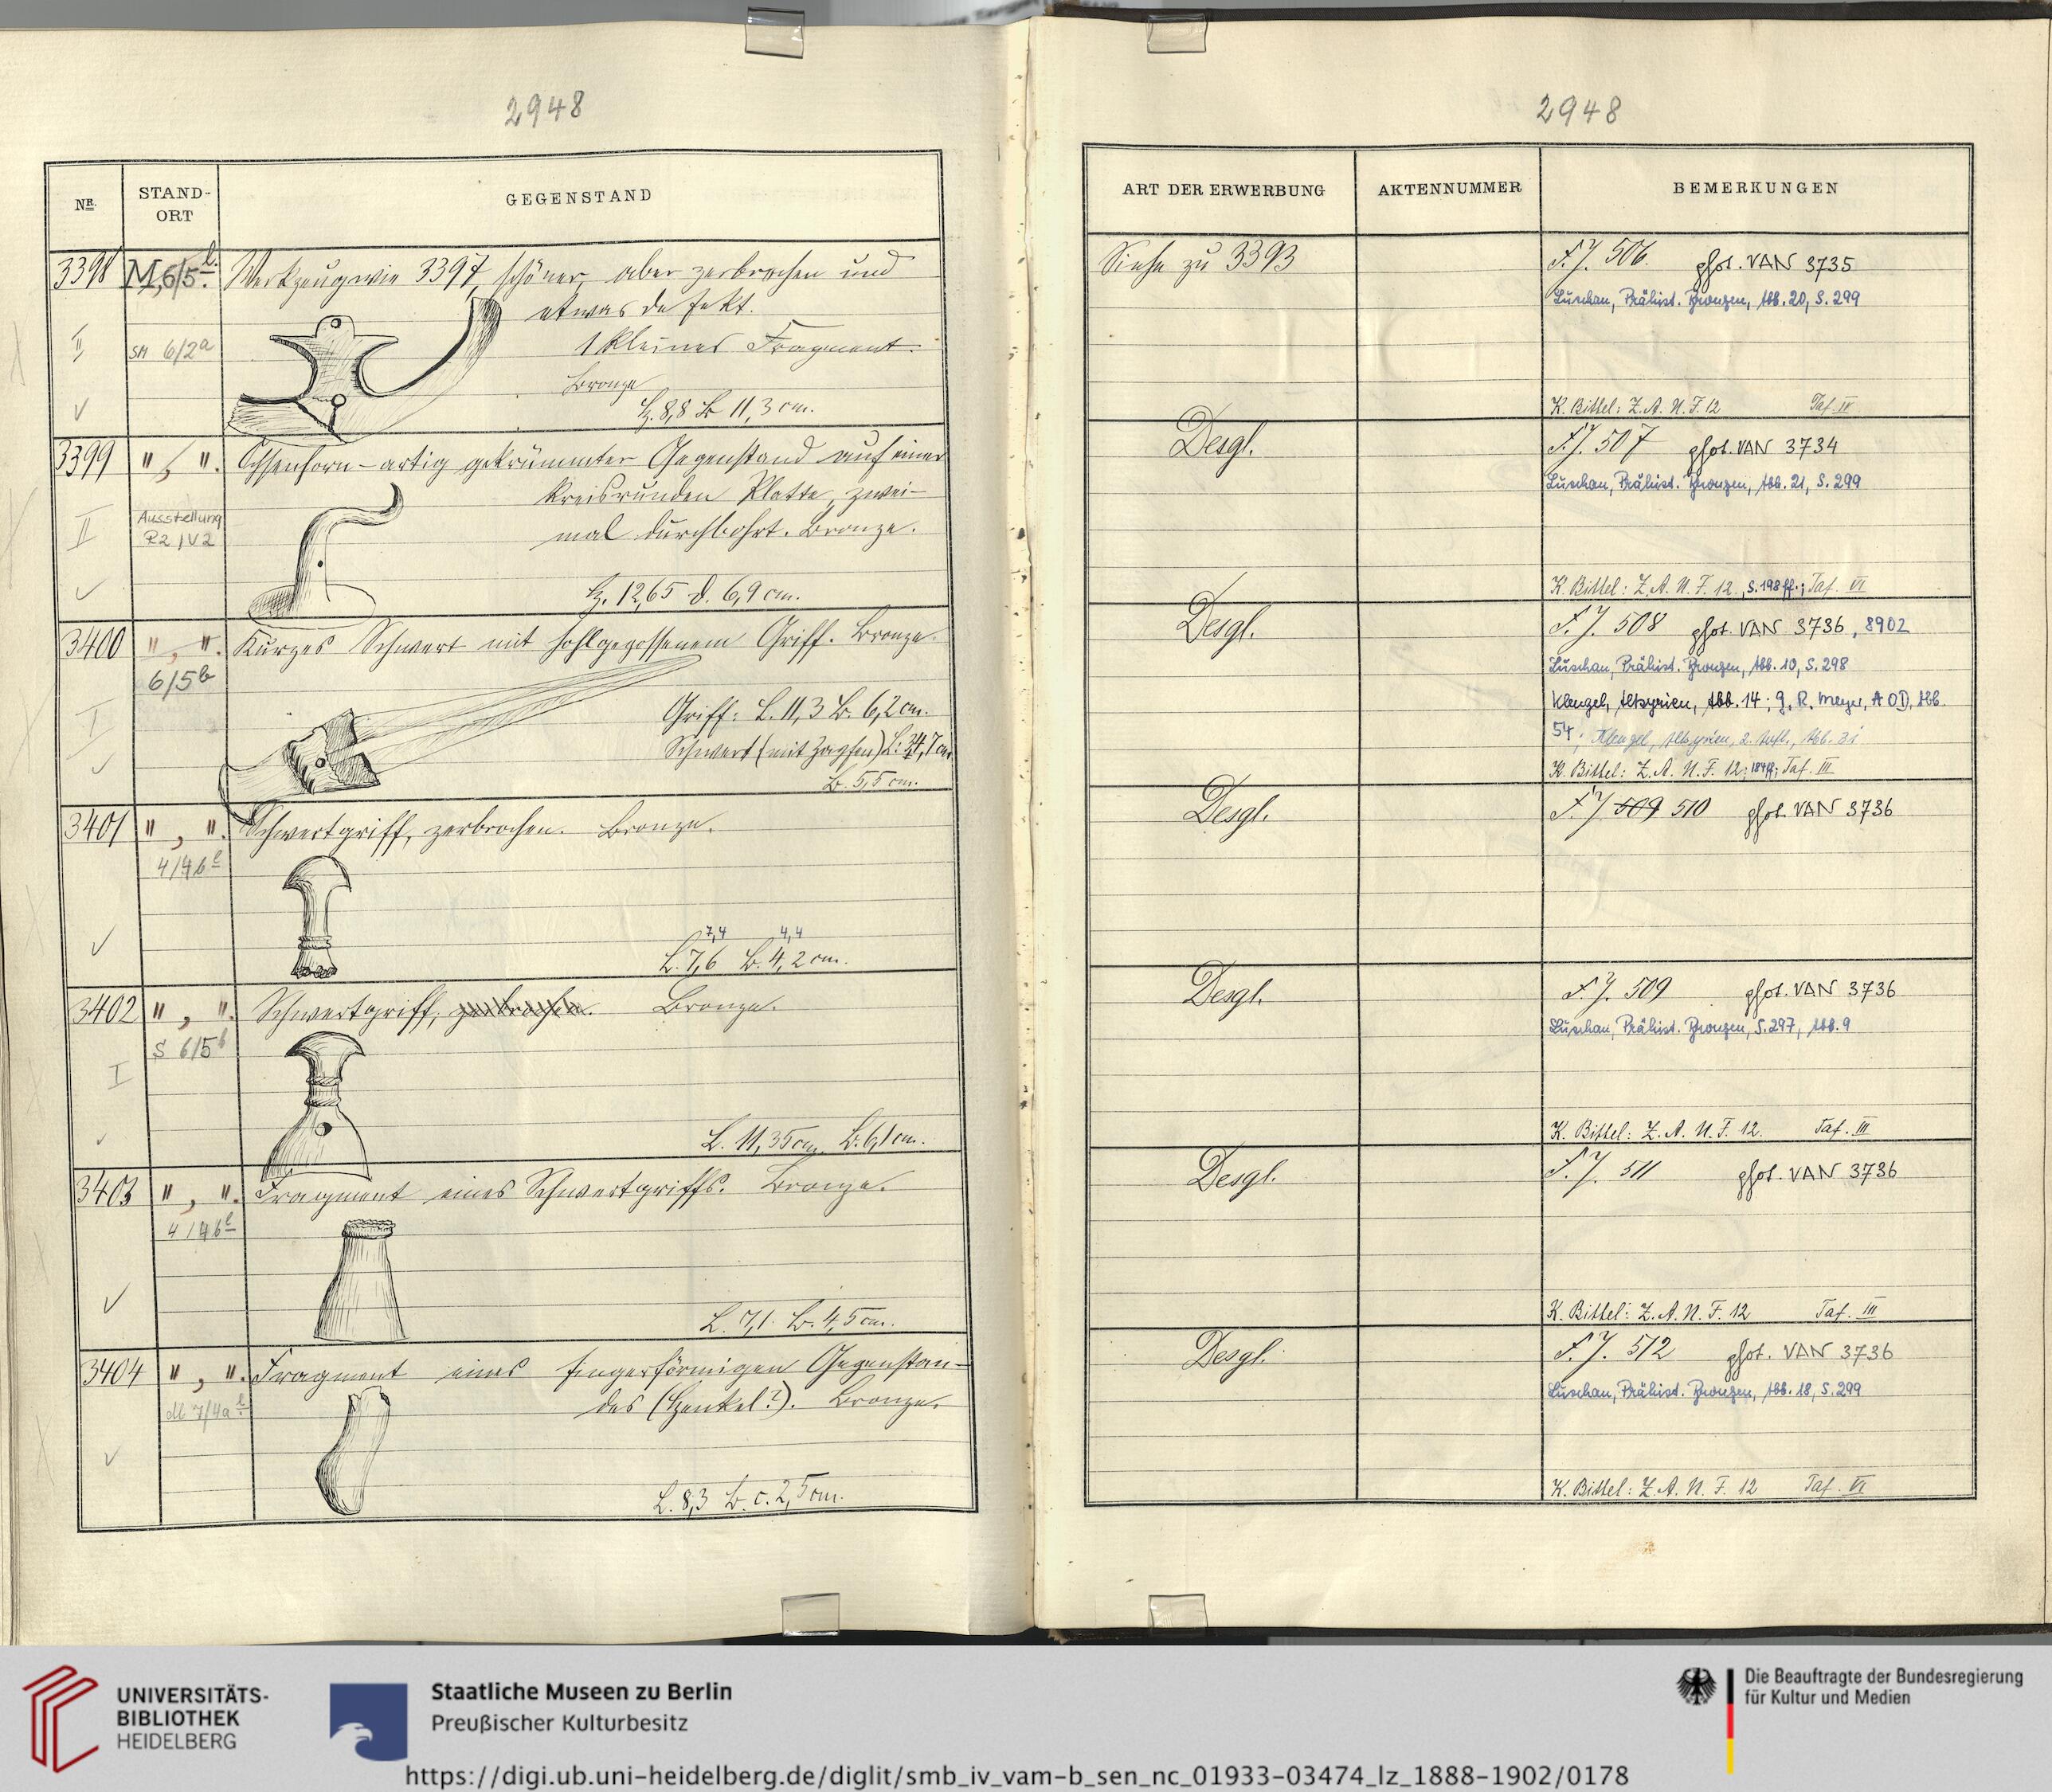 2948
NR.
STAND-
ORT
GEGENSTAND
3398
M, 6/5 l.
Werkzeug wie 3397, schöner, aber zerbrochen und
etwas defekt.
II
SM 6/2a
1 kleines Fragment.
Bronze
H. 8,8 B 11,3 cm.
3399
" , ".
Ochsenhorn-artig gekrümmter Gegenstand auf einer
kreisrunden Platte, zwei-
II
Ausstellung
R2/V2
mal durchbohrt. Bronze.
H. 12,65 d. 6,9 cm.
3400
" , ".
Kurzes Schwert mit hohlgegossenem Griff. Bronze.
6/5b
I
Griff: L. 11,3 B. 6,2 cm.
Schwert (mit Zapfen) L: 34,7 cm
B. 5,5 cm.
3401
" , ".
Schwertgriff, zerbrochen. Bronze.
4/4b l
7,4 4,4
L. 7,6 B. 4,2 cm.
3402
" , ".
Schwertgriff, zerbrochen. Bronze.
S 6/5b
I
L. 11,35 cm. B. 6,1 cm.
3403
" , ".
Fragment eines Schwertgriffs. Bronze.
4/4b l
L. 7,1 B. 4,5 cm.
3404
" , ".
Fragment eines fingerförmigen Gegenstan-
des (Henkel?). Bronze.
M 7/4a l
L. 8,3 B. c. 2,5 cm.
2948
ART DER ERWERBUNG
AKTENNUMMER
BEMERKUNGEN
Siehe zu 3393
F.J. 506. phot. VAN 3735
Luschan, Prähist. Bronzen, Abb. 20, S. 299
K. Bittel: Z. A. N. F. 12 Taf. IV
Desgl.
F.J. 507 phot. VAN 3734
Luschan, Prähist. Bronzen, Abb. 21, S. 299
K. Bittel: Z. A. N. F. 12, S. 198 ff.; Taf. VI
Desgl.
F.J. 508 phot. VAN 3736, 8902
Luschan, Prähist. Bronzen, Abb. 10, S. 298
Klengel, Altsyrien, Abb. 14; G. R. Meyer, AOD, Abb.
54; Klengel, Altsyrien, 2. Aufl., Abb. 31
K. Bittel: Z. A. N. F. 12; 184 ff; Taf. III
Desgl.
F.J. 509 510 phot. VAN 3736
Desgl.
F.J. 509 phot. VAN 3736
Luschan, Prähist. Bronzen, S. 297, Abb. 9
K. Bittel: Z. A. N. F. 12. Taf. III
Desgl.
F.J. 511 phot. VAN 3736
K. Bittel: Z. A. N. F. 12 Taf. III
Desgl.
F.J. 512 phot. VAN 3736
Luschan, Prähist. Bronzen, Abb. 18, S. 299
K. Bittel: Z. A. N. F. 12 Taf. VI
UNIVERSITÄTS-
BIBLIOTHEK
HEIDELBERG
Staatliche Museen zu Berlin
Preußischer Kulturbesitz
Die Beauftragte der Bundesregierung
für Kultur und Medien
https://digi.ub.uni-heidelberg.de/diglit/smb_iv_vam-b_sen_nc_01933-03474_lz_1888-1902/0178